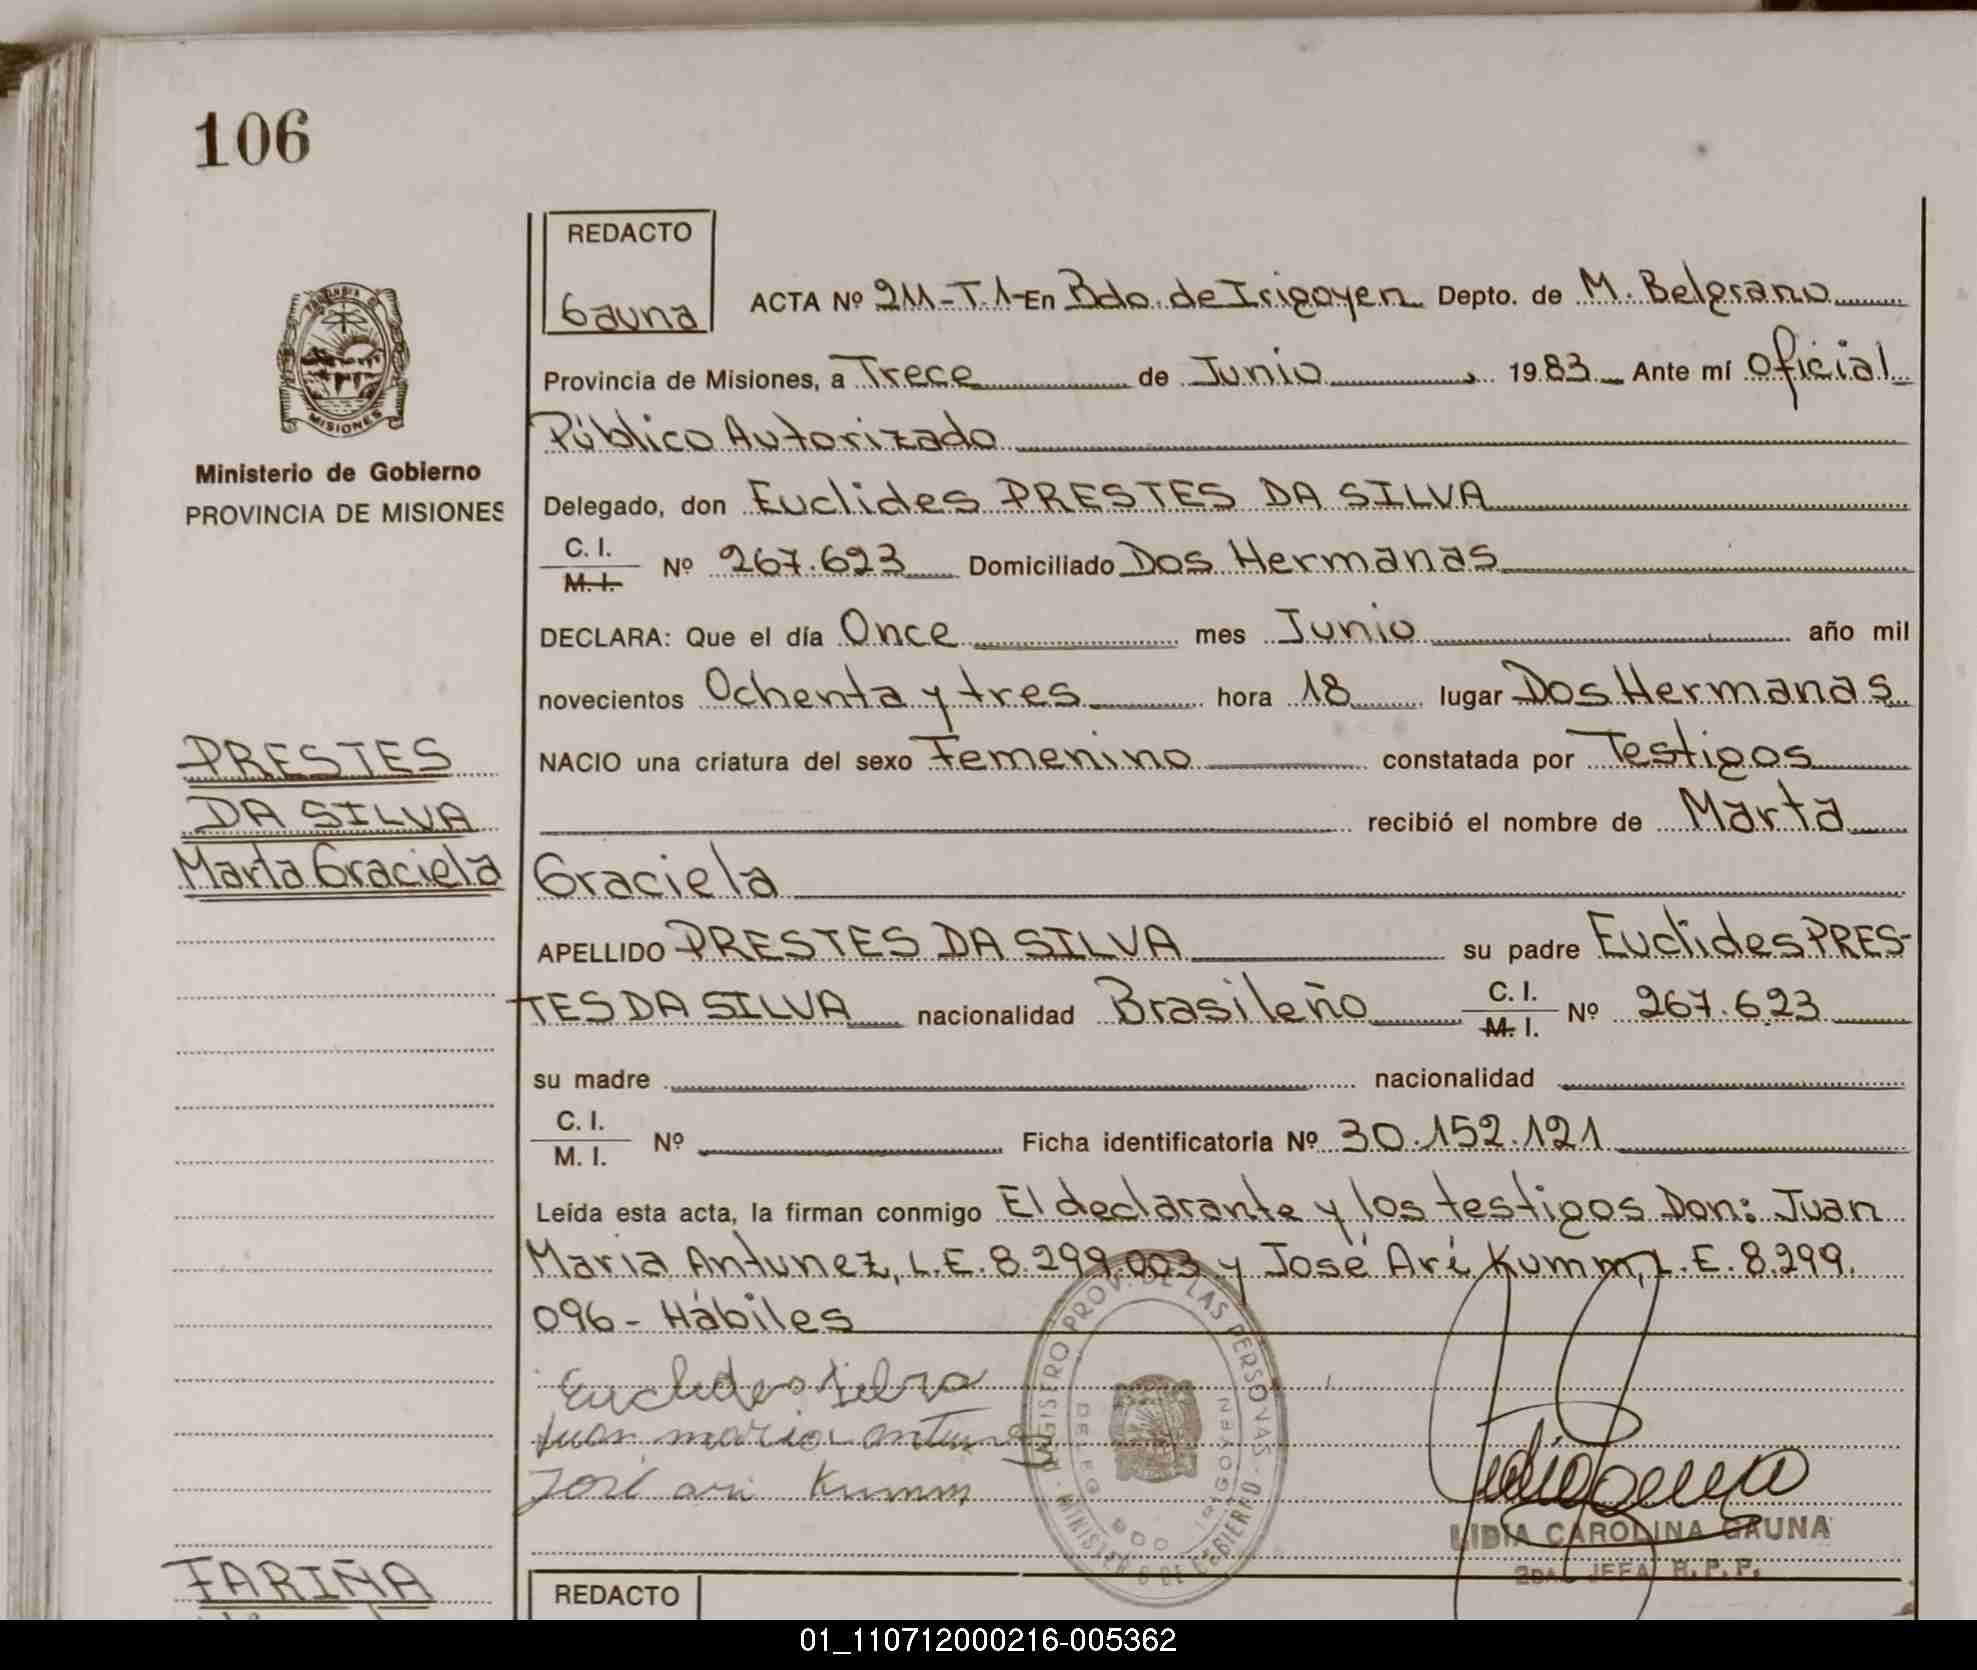 106
REDACTO
Gauna
ACTA Nº 211-T.1-En Bdo. de Irigoyen Depto. de M. Belgrano
Provincia de Misiones, a Trece de Junio, 1983 Ante mí Oficial
Público Autorizado
MISIONES
Ministerio de Gobierno
PROVINCIA DE MISIONES
Delegado, don Euclides PRESTES DA SILVA
C. I.
M. I. Nº 267.623 Domiciliado Dos Hermanas
DECLARA: Que el día Once mes Junio año mil
novecientos Ochenta y tres hora 18 lugar Dos Hermanas
NACIO una criatura del sexo Femenino constatada por Testigos
recibió el nombre de Marta
Graciela
PRESTES
DA SILVA
Marta Graciela
APELLIDO PRESTES DA SILVA su padre Euclides PRES-
TES DA SILVA nacionalidad Brasileño C. I. M. I. Nº 267.623
su madre nacionalidad
C. I.
M. I. Nº Ficha identificatoria Nº 30.152.121
Leída esta acta, la firman conmigo El declarante y los testigos Don: Juan
Maria Antunez, L.E. 8.299.003 y José Ari Kumm, L.E. 8.299.
096- Hábiles
Euclides Silva
Juan maria antunez
José ari Kumm
REGISTRO PROV. DE LAS PERSONAS - MINISTERIO DE GOBIERNO
DELEG. BDO. IRIGOYEN
LIDIA CAROLINA GAUNA
2DA. JEFA R.P.P.
FARIÑA
REDACTO
01_110712000216-005362